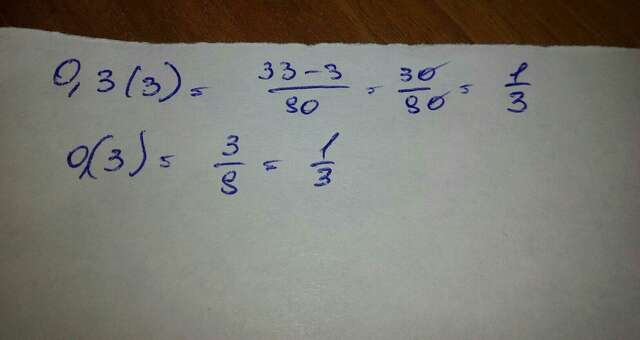 0,3(3) = 33-3/90 = 30/90 = 1/3
0,(3) = 3/9 = 1/3